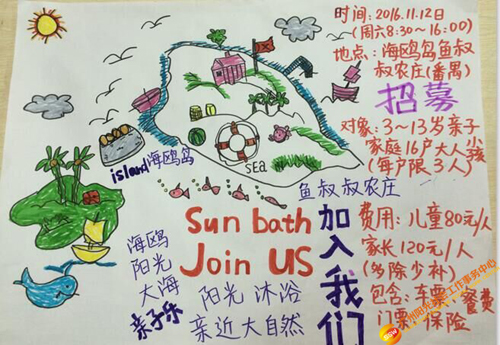 时间:2016.11.12日
(周六8:30~16:00)
地点:海鸥岛鱼叔
叔农庄(番禺)
招募
对象:3~13岁亲子
家庭16户大人小孩
(每户限3人)
island海鸥岛
sea
鱼叔叔农庄
Sun bath
Join US
加入我们
费用:儿童80元/人
家长120元/人
(多除少补)
包含:车票 餐费
门票 保险
海鸥
阳光
大海
亲子乐
阳光 沐浴
亲近大自然
工作事务中心